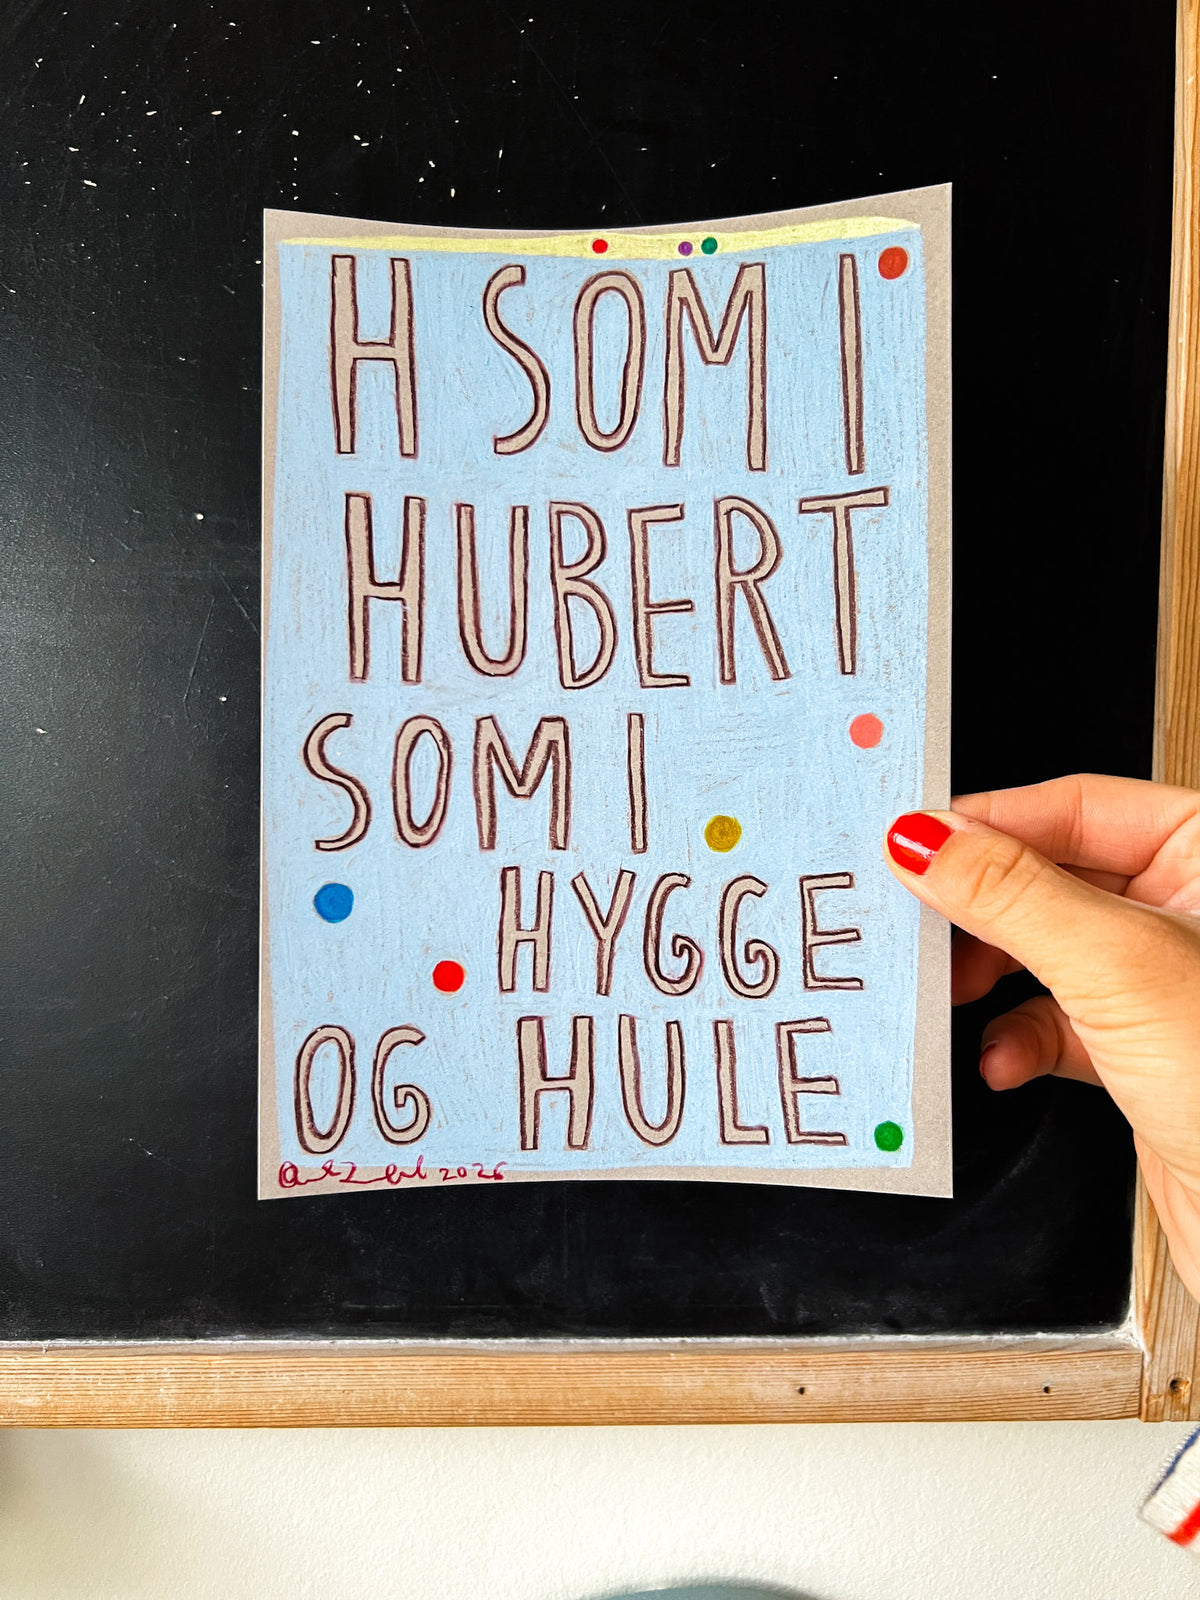 H SOM I
HUBERT
SOM I
HYGGE
OG HULE
2026